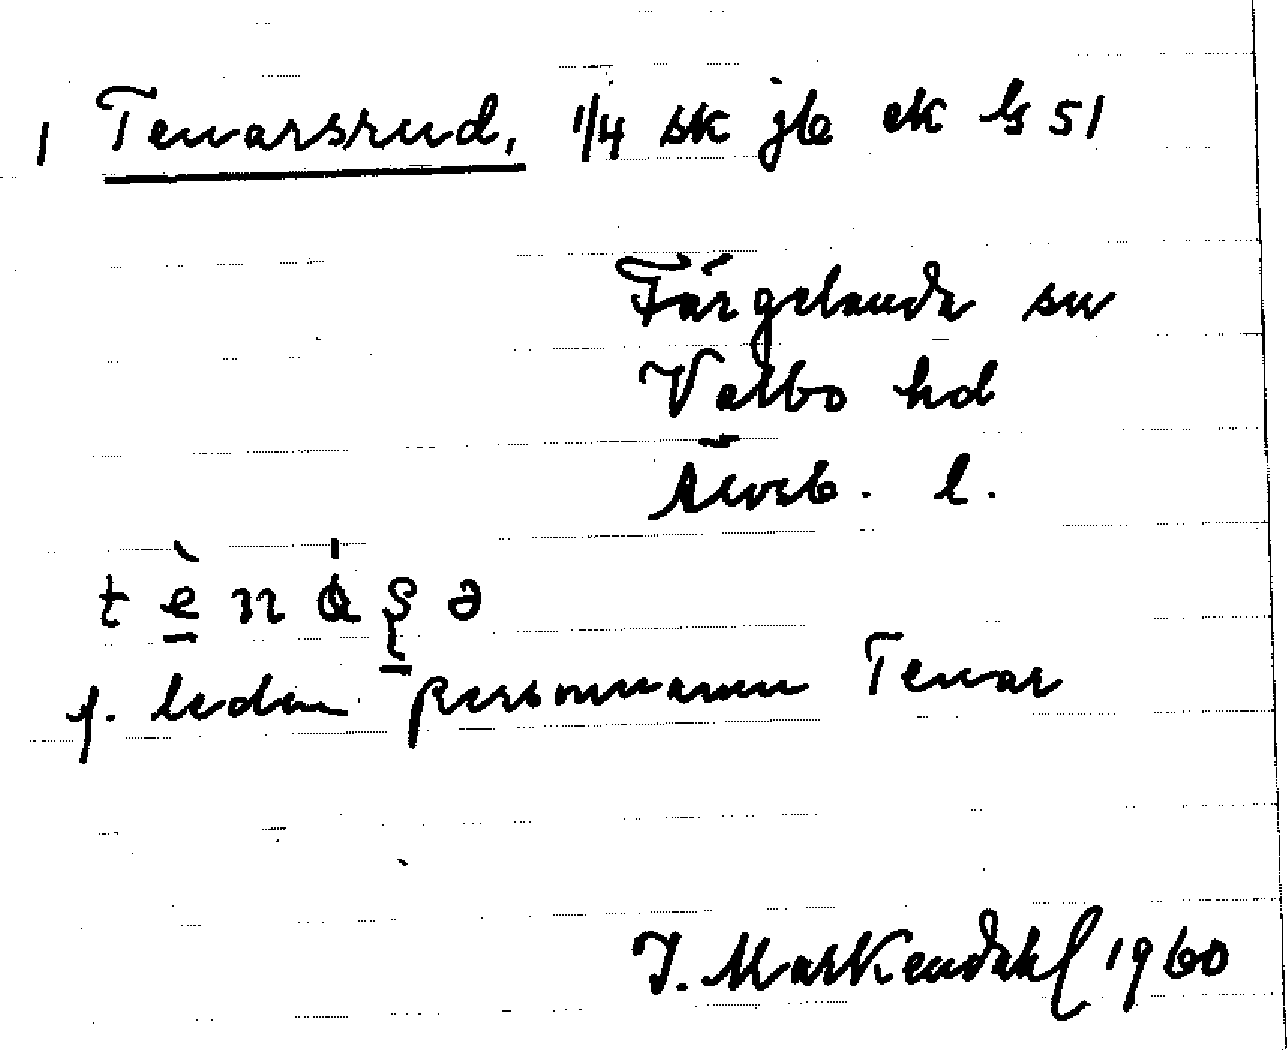 1 Tenarsrud, 1/4 sk jb ek G 51
Färgelanda sn
Valbo hd
Älvsb. l.
t è n ȧ ʂ ə
f. leden personnamn Tenar
I. Markendahl 1960